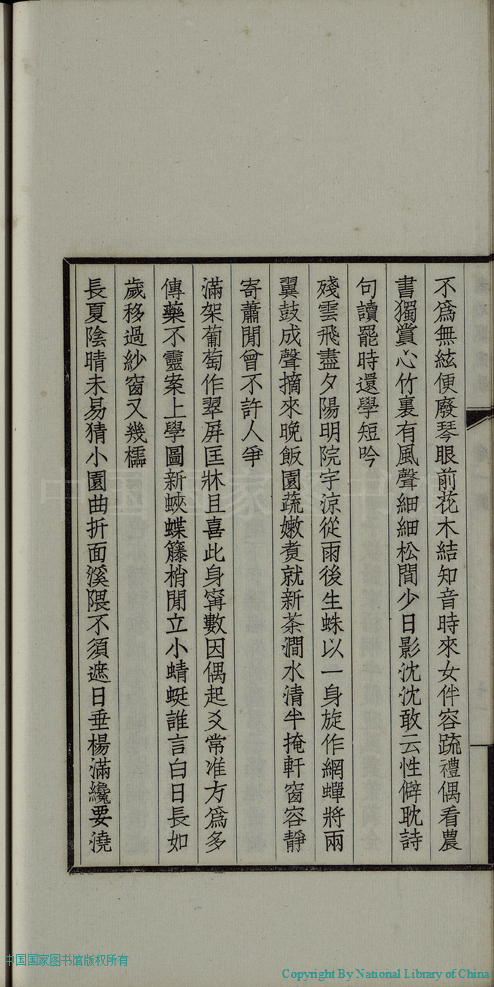 不爲無絃便廢琴眼前花木結知音時來女伴容疏禮偶看農
書獨賞心竹裏有風聲細細松間少日影沈沈敢云性僻耽詩
句讀罷時還學短吟
殘雲飛盡夕陽明院宇涼從雨後生蛛以一身旋作網蟬將兩
翼鼓成聲摘來晚飯園蔬嫩煑就新茶澗水清半掩軒窗容靜
寄蕭閒曾不許人爭
滿架葡萄作翠屏匡牀且喜此身寧數因偶起爻常准方爲多
傳藥不靈案上學圖新蛺蝶籐梢閒立小蜻蜓誰言白日長如
歲移過紗窗又幾櫺
長夏陰晴未易猜小園曲折面溪隈不須遮日垂楊滿纔要澆
中国国家图书馆版权所有
Copyright By National Library of China